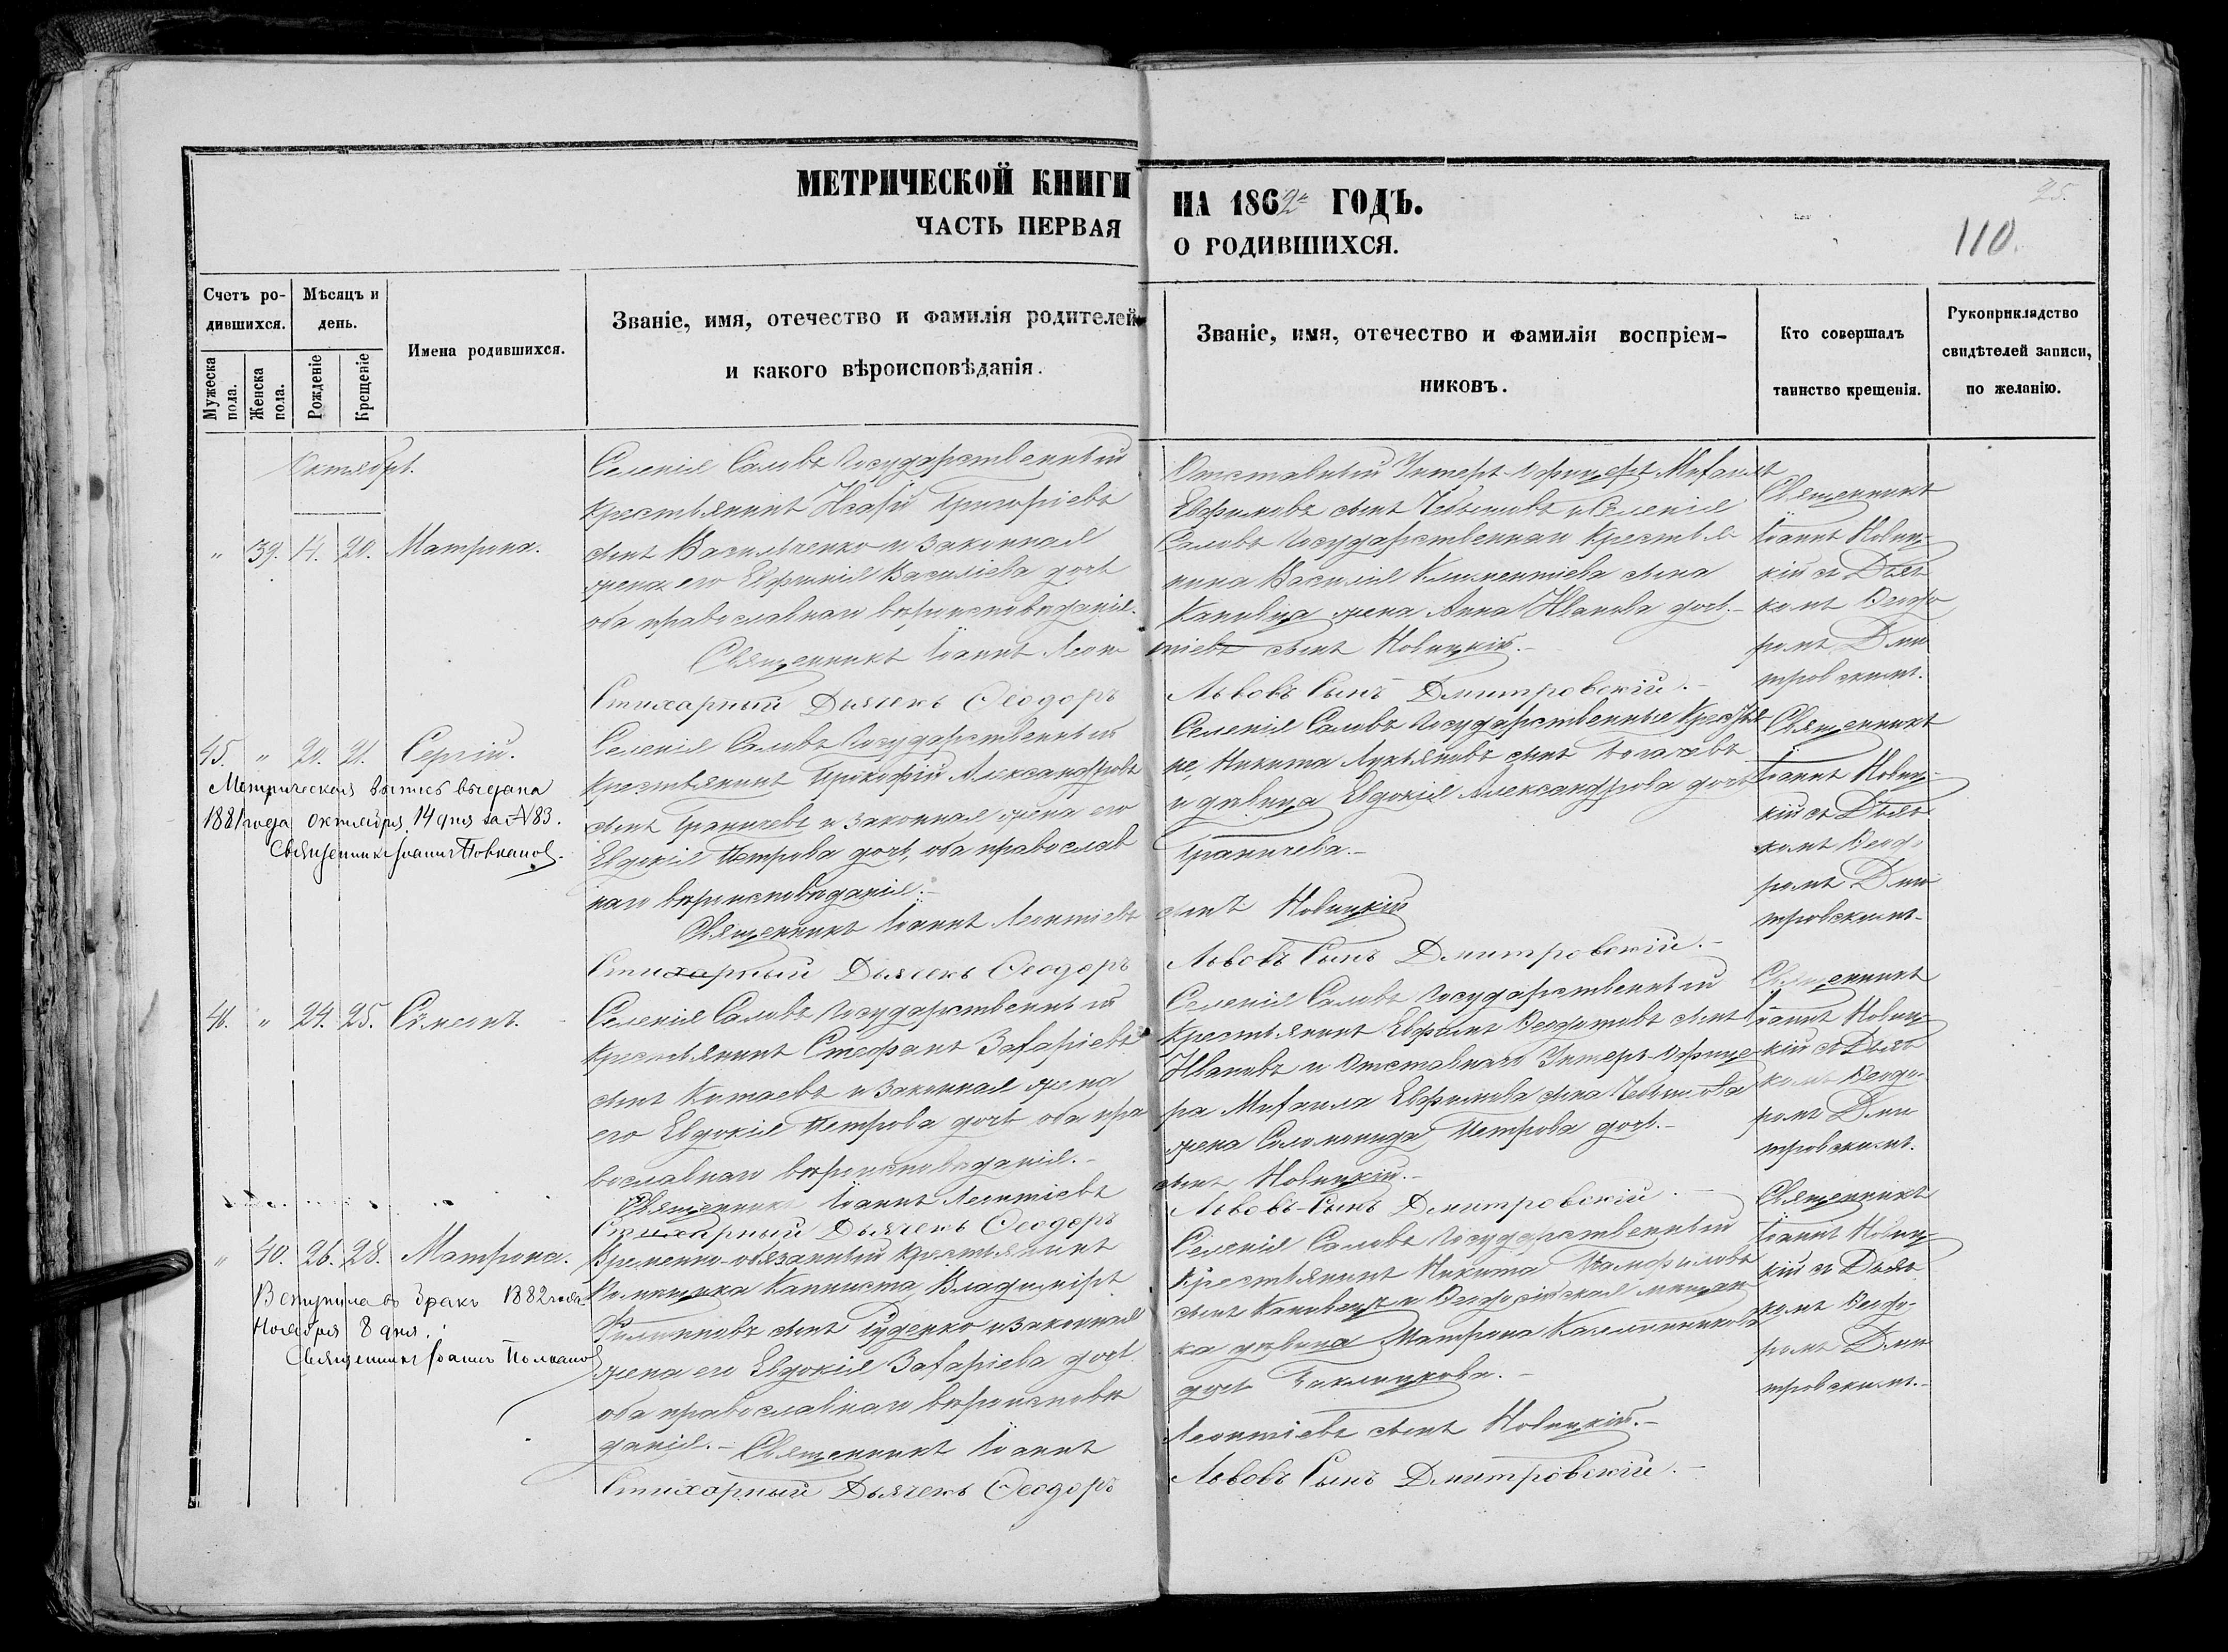 МЕТРИЧЕСКОЙ КНИГИ
ЧАСТЬ ПЕРВАЯ
НА 1862й ГОДЪ.
О РОДИВШИХСЯ.
25.
110.
Счетъ ро-
дившихся.
Мужеска
пола.
Женска
пола.
Мѣсяцъ и
день.
Рожденіе
Крещеніе
Имена родившихся.
Званіе, имя, отечество и фамилія родителей
и какого вѣроисповѣданія.
Званіе, имя, отечество и фамилія воспріем-
никовъ.
Кто совершалъ
таинство крещенія.
Рукоприкладство
свидѣтелей записи,
по желанію.
Октябрь.
" 39. 14. 20. Матрона.
Селенія Саловъ Государственный
крестьянинъ Исаій Григоріевъ
сынъ Васильченко и законная
жена его Евфимія Василіева дочь
оба православнаго вѣроисповѣданія.
Священникъ Іоаннъ Леон
Стихарный Дьячекъ Ѳеодоръ
Отставный Унтеръ-Офицеръ Михаилъ
Евфимовъ сынъ и Селенія
Саловъ Государственнаго Крестья-
нина Василія Климентіева сына
Кановца жена Анна Иванова дочь.-
тіевъ сынъ Новицкій.-
Львовъ Сынъ Дмитровскій.-
Священникъ
Іоаннъ Новиц-
кій съ Дьяч-
комъ Ѳеодо
ромъ Дми
тровскимъ.
45. " 20. 21. Сергій.
Метрическая выпись выдана
1881 года октября 14 дня за №83.
Священникъ Іоаннъ
Селенія Саловъ Государственный
крестьянинъ Прокофій Александровъ
сынъ Граничевъ и законная жена его
Евдокія Петрова дочь, оба православ
наго вѣроисповѣданія.-
Священникъ Іоаннъ Леонтіевъ
Стихарный Дьячекъ Ѳеодоръ
Селенія Саловъ Государственные Крестья-
не, Никита Лукьяновъ сынъ
и дѣвица Евдокія Александрова дочь
Граничева.-
сынъ Новицкій
Львовъ Сынъ Дмитровскій.-
Священникъ
Іоаннъ Новиц-
кій съ Дьяч-
комъ Ѳеодо
ромъ Дми
тровскимъ-
46. " 24. 25. Сѵмеонъ.
Селенія Саловъ Государственный
крестьянинъ Стефанъ Захаріевъ
сынъ Китаевъ и законная жена
его Евдокія Петрова дочь оба пра
вославнаго вѣроисповѣданія.-
Священникъ Іоаннъ Леонтіевъ
Стихарный Дьячекъ Ѳеодоръ
Селенія Саловъ Государственный
крестьянинъ Евфимъ Ѳедотовъ сынъ
Ивановъ и Отставнаго Унтеръ-Офице
ра Михаила Евфимова сына
жена Соломонида Петрова дочь.-
сынъ Новицкій.-
Львовъ-Сынъ Дмитровскій.-
Священникъ
Іоаннъ Новиц
кій съ Дьяч
комъ Ѳеодо-
ромъ Дми
тровскимъ.
" 40. 26. 28. Матрона.
Вступила въ бракъ 1882 года
Ноября 8 дня.
Священникъ Іоаннъ
Временно-обязанный крестьянинъ
Помѣщика Капниста, Владиміръ
Филиповъ сынъ Руденко и законная
жена его Евдокія Захаріева дочь
оба православнаго вѣроисповѣ
данія.- Священникъ Іоаннъ
Стихарный Дьячекъ Ѳеодоръ
Селенія Саловъ Государственный
Крестьянинъ Никита Памфиловъ
сынъ Кановецъ и Ѳеодосійская мѣщан
ка дѣвица Матрона
дочь
Леонтіевъ сынъ Новицкій.-
Львовъ Сынъ Дмитровскій.-
Священникъ
Іоаннъ Новиц-
кій съ Дьяч
комъ Ѳеодо-
ромъ Дми
тровскимъ.-